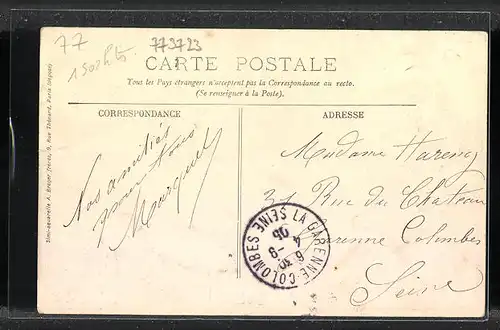 77
1500 hts
773723
CARTE POSTALE
Tous les Pays étrangers n'acceptent pas la Correspondance au recto.
(Se renseigner à la Poste).
CORRESPONDANCE
ADRESSE
Nos amitiés
pour tous
Madame Harency
31 Rue du Chateau
Garenne Colombes
Seine
LA GARENNE-COLOMBES SEINE
6 30
4 -9
05
Simi-aquarelle A. Breger frères, 9, Rue Thénard, Paris